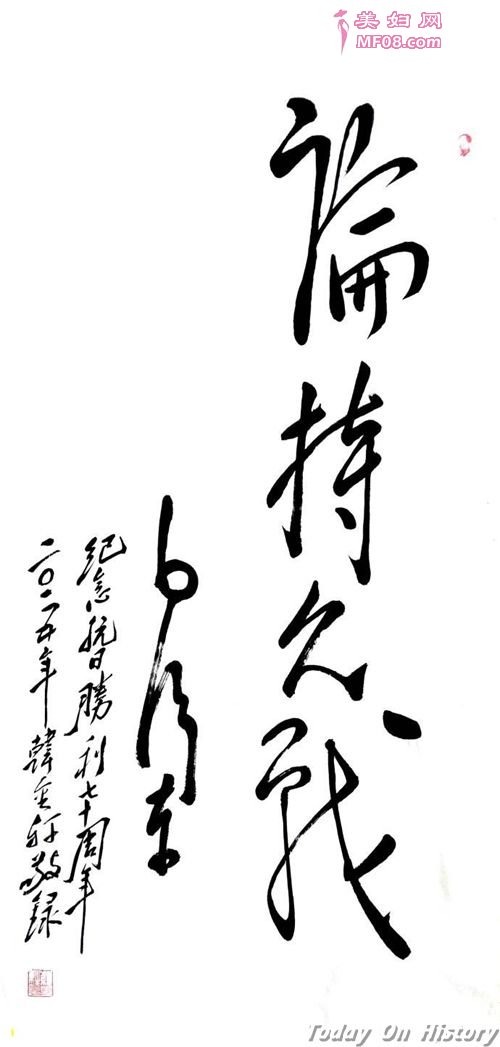 美妇网
MF08.com
論持久戰
毛泽东
紀念抗日勝利七十周年
二〇一五年 韓敬録
Today On History